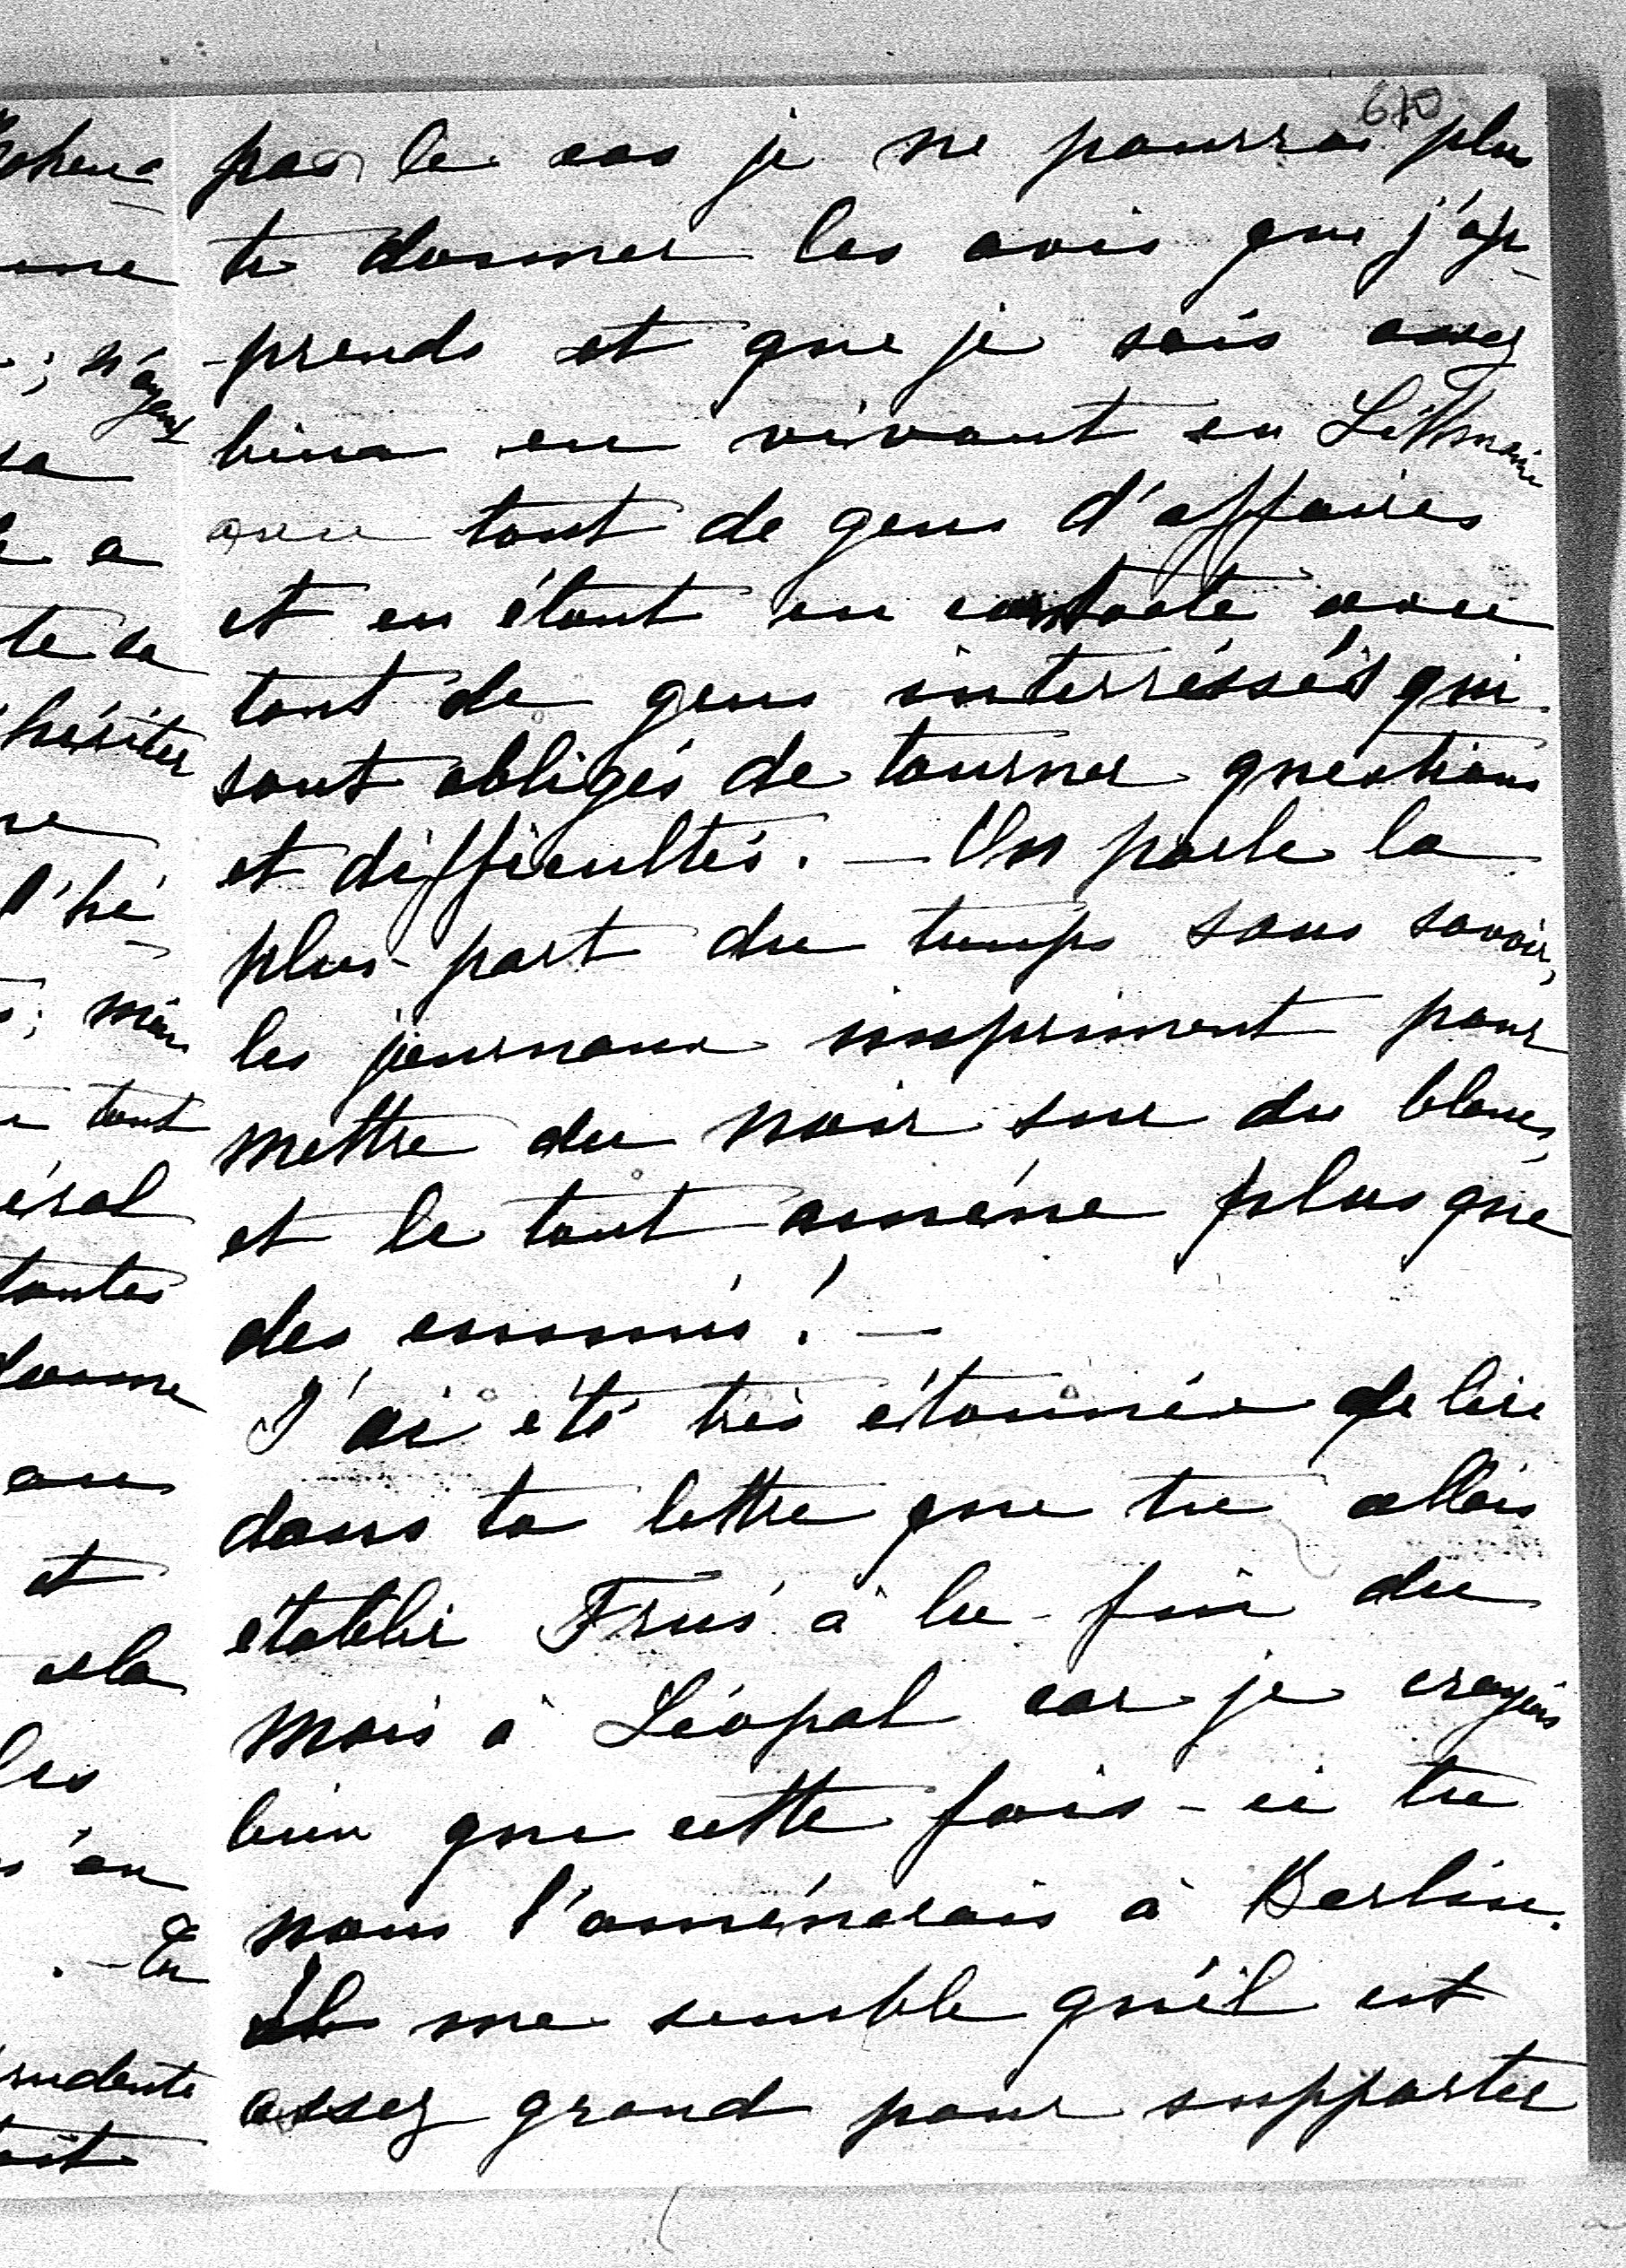 670
pas le cas je ne pourrai plus
te donner les avis que j'ap-
-prends et que je sais assez
bien en vivant en Lithuanie
avec tant de gens d'affaires
et en étant en contacte avec
tant de gens interréssés qui
sont obligés de tourner questions
et difficultés. — On parle la
plus-part du temps sans savoir,
les journaux impriment pour
mettre du noir sur du blanc,
et le tout améne plus que
des ennuis! —
J'ai été très étonnée de lire
dans ta lettre que tu allais
établir Frus à la fin du
mois à Léopal car je croyais
bien que cette fois-ci tu
nous l'aménerais à Berlin.
Il me semble qu'il est
assez grand pour supporter